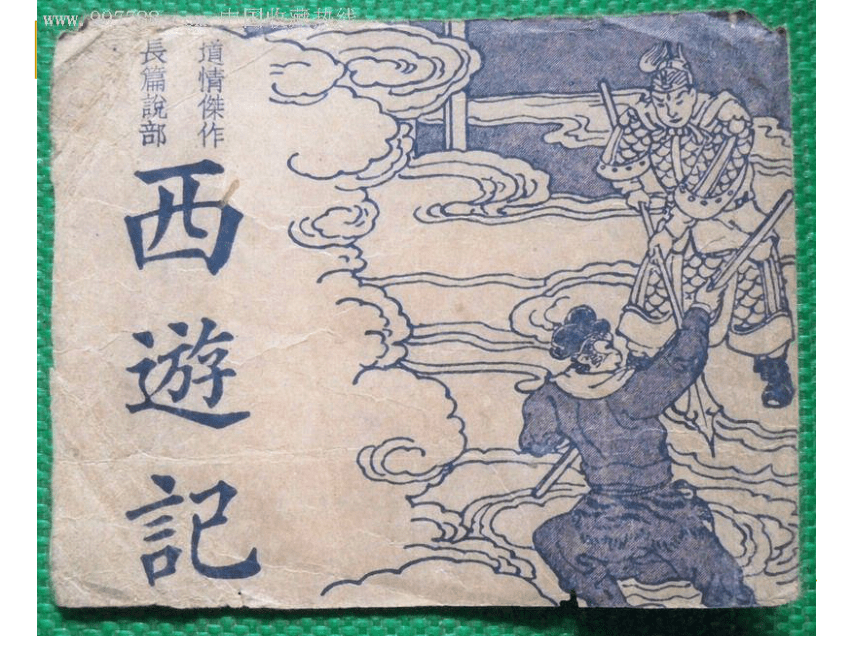 www.997788.com 中国收藏热线
道情傑作
長篇說部
西遊記